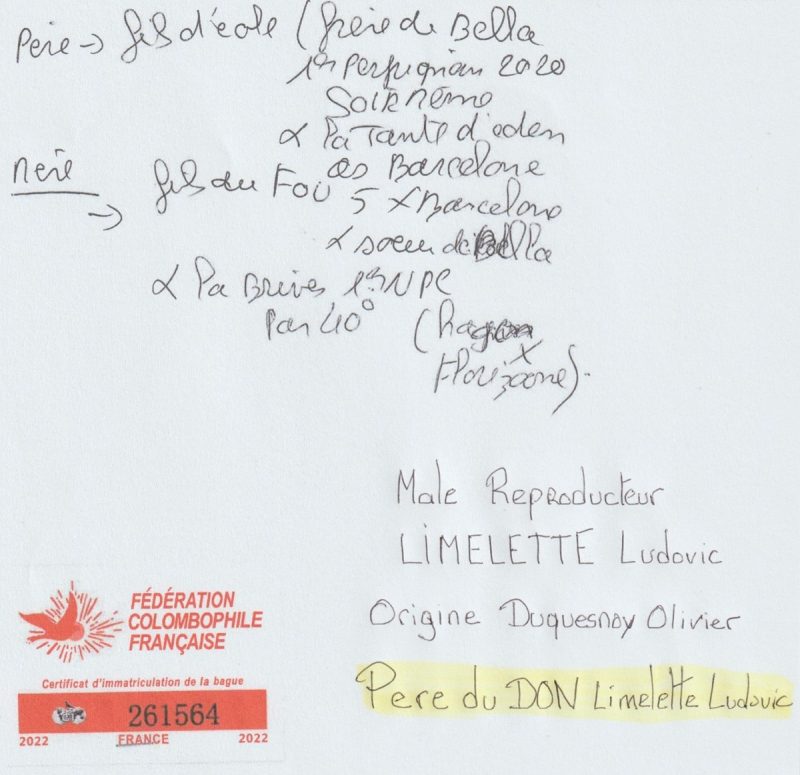 Père → fils d'éole (frère de Bella
1er Perpignan 2020
Soirnême
x la Tante d'eden
as Barcelone
Mère → fils du Fou 5 x Barcelone
x soeur de Bella
x la Brives 1er NPC
Par 40°
(hagon
x
Florizoone).
Male Reproducteur
LIMELETTE Ludovic
Origine Duquesnoy Olivier
Pere du DON Limelette Ludovic
FÉDÉRATION
COLOMBOPHILE
FRANÇAISE
Certificat d'immatriculation de la bague
261564
2022 FRANCE 2022